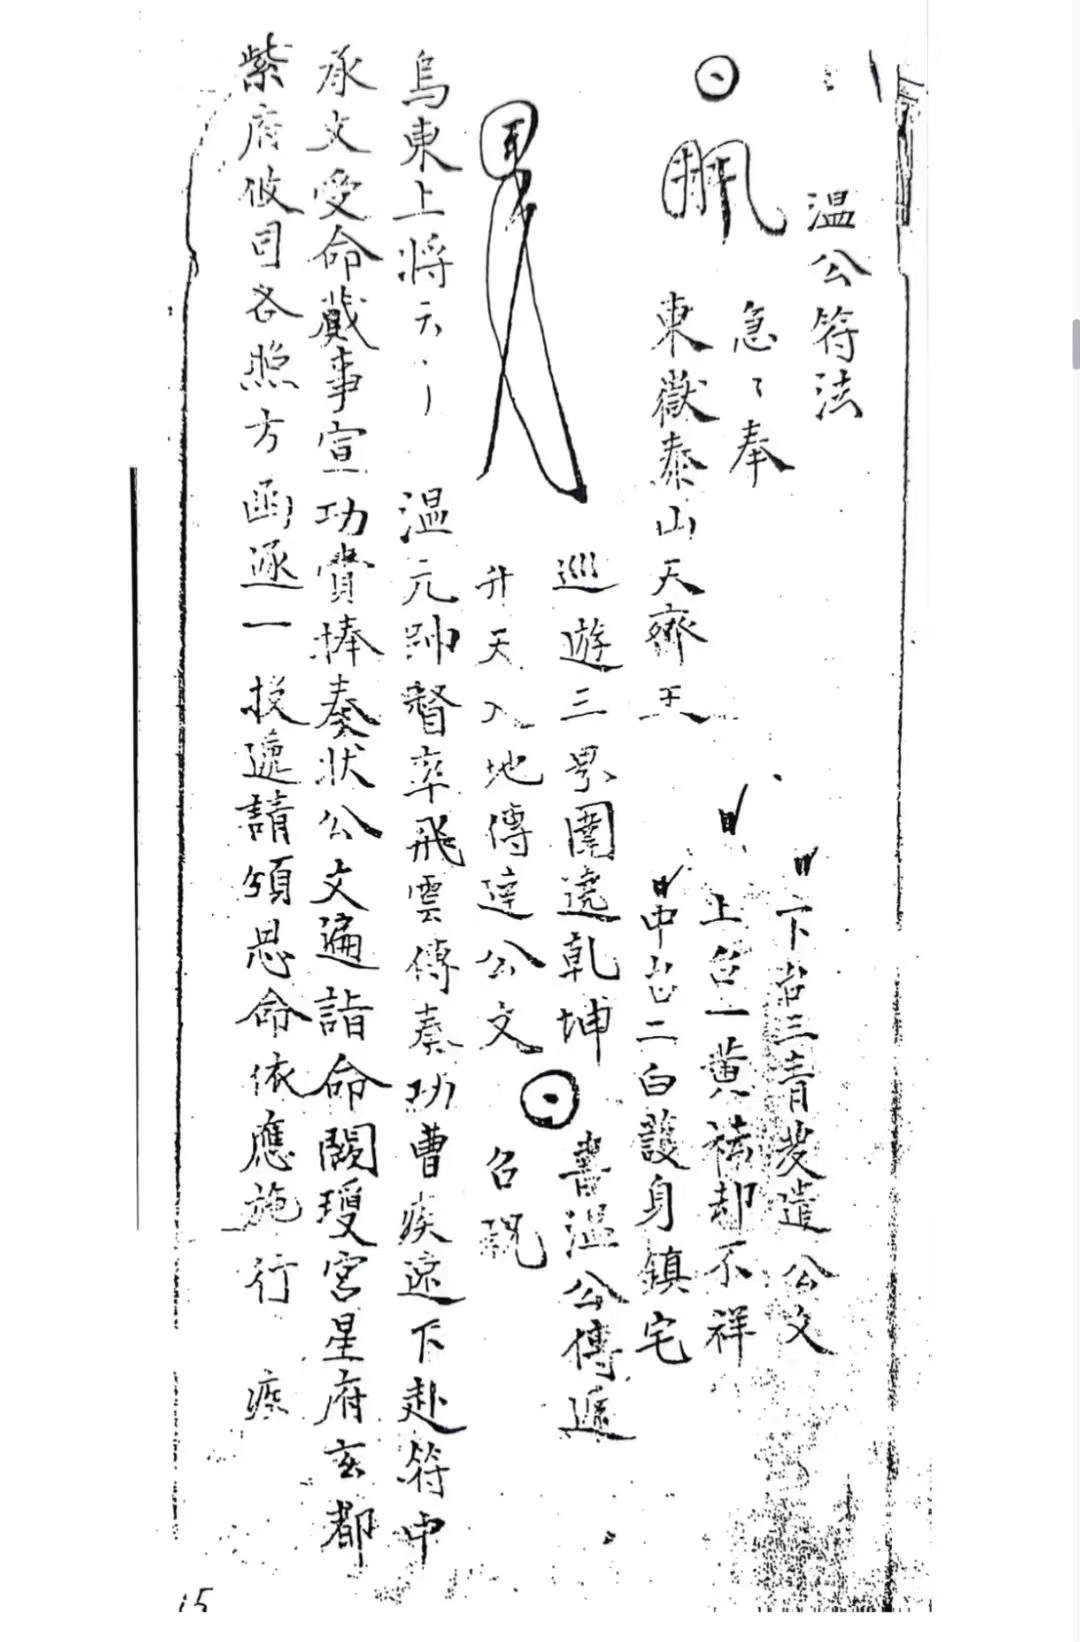 溫公符法
急〻奉
東嶽泰山天齊王
下台三青發遣公文
上台一黄祛却不祥
中台二白護身鎮宅
巡遊三界圍遶乾坤
書溫公傳遞
升天入地傳達公文
召祝
烏東上將云
溫元帥督率飛雲傳奏功曹疾速下赴符中
承文受命蕆事宣功賫捧奏状公文遍詣命闕瓊宮星府玄都
紫府攸司各照方函逐一投遞請頒恩命依應施行 疾
15